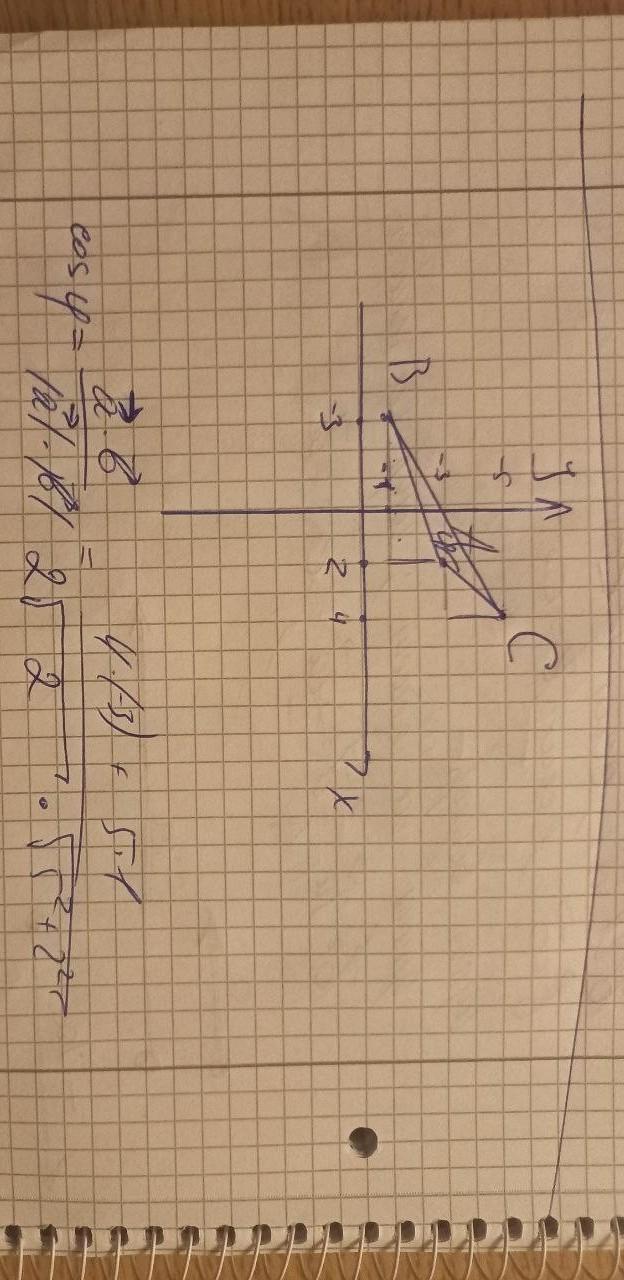 y
-5
C
-3
A
B
-1
-3 2 4
x
cos φ = a⃗ · b⃗ / |a⃗| · |b⃗| = 4·(-3) + 5·1 / 2√2 · √5² + 2²